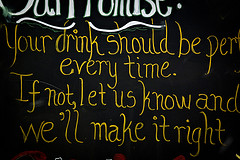 Our Promise:
Your drink should be per
every time.
If not, let us know and
we'll make it right